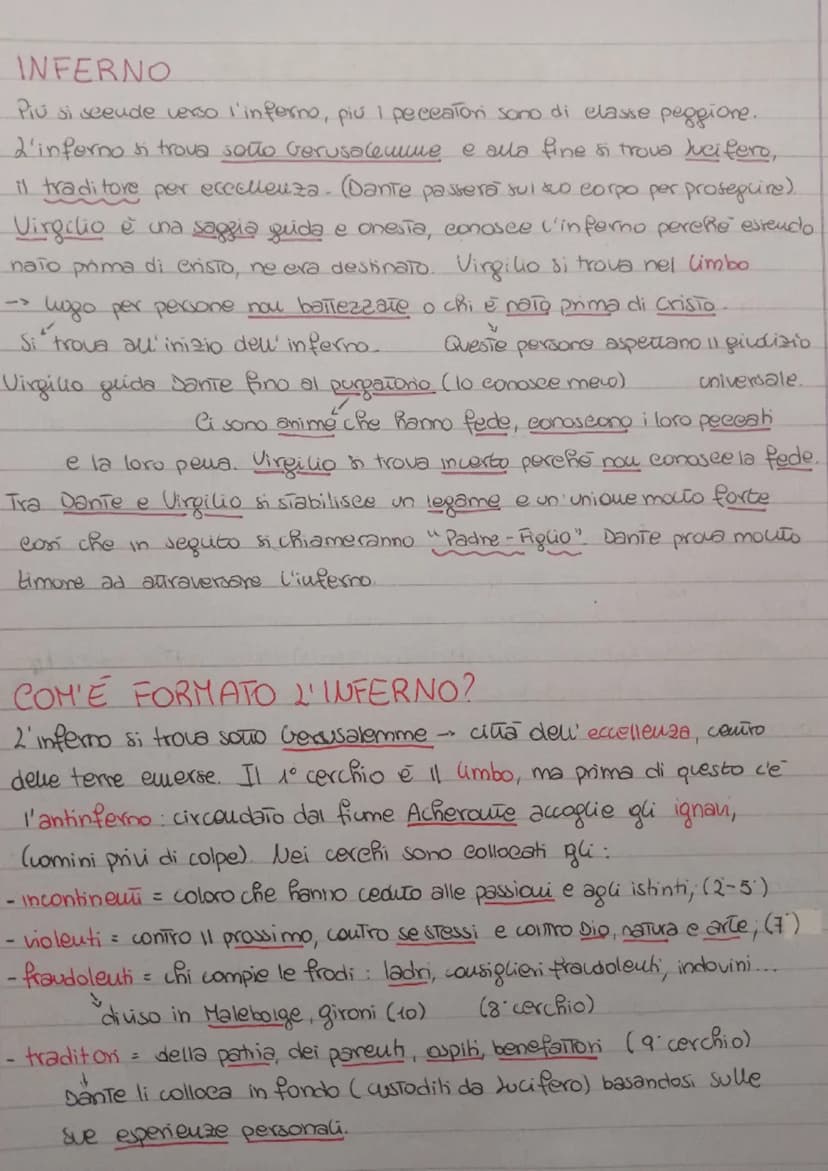 INFERNO
Più si scende verso l'inferno, più i peccatori sono di classe peggiore.
L'inferno si trova sotto Gerusalemme e alla fine si trova Lucifero,
il traditore per eccellenza. (Dante passerà sul suo corpo per proseguire)
Virgilio è una saggia guida e onesta, conosce l'inferno perché essendo
nato prima di Cristo, ne era destinato. Virgilio si trova nel limbo
→ luogo per persone non battezzate o chi è nato prima di Cristo.
Si trova all'inizio dell'inferno. Queste persone aspettano il giudizio
Virgilio guida Dante fino al purgatorio (lo conosce meno) universale.
Ci sono anime che hanno fede, conoscono i loro peccati
e la loro pena. Virgilio si trova incerto perché non conosce la fede.
Tra Dante e Virgilio si stabilisce un legame e un'unione molto forte
così che in seguito si chiameranno "Padre-Figlio". Dante prova molto
timore ad attraversare l'inferno.
COM'È FORMATO L'INFERNO?
L'inferno si trova sotto Gerusalemme → città dell'eccellenza, centro
delle terre emerse. Il 1° cerchio è il limbo, ma prima di questo c'è
l'antinferno: circondato dal fiume Acheronte accoglie gli ignavi,
(uomini privi di colpe). Nei cerchi sono collocati gli:
- incontinenti = coloro che hanno ceduto alle passioni e agli istinti, (2-5°)
- violenti = contro il prossimo, contro se stessi e contro Dio, natura e arte, (7°)
- fraudolenti = chi compie le frodi: ladri, consiglieri fraudolenti, indovini...
diviso in Malebolge, gironi (10) (8° cerchio)
- traditori = della patria, dei parenti, ospiti, benefattori (9° cerchio)
Dante li colloca in fondo (custoditi da Lucifero) basandosi sulle
sue esperienze personali.